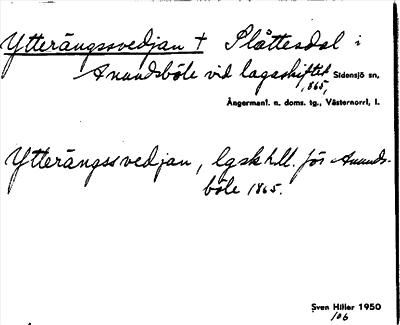 Ytterängssvedjan † Slåttesdal i
Anundsböle vid lagaskiftet Sidensjö sn,
1865,
Ångermanl. n. doms. tg., Västernorrl, l.
Ytterängssvedjan, lgsk hll. för Anunds-
böle 1865.
Sven Hiller 1950
106